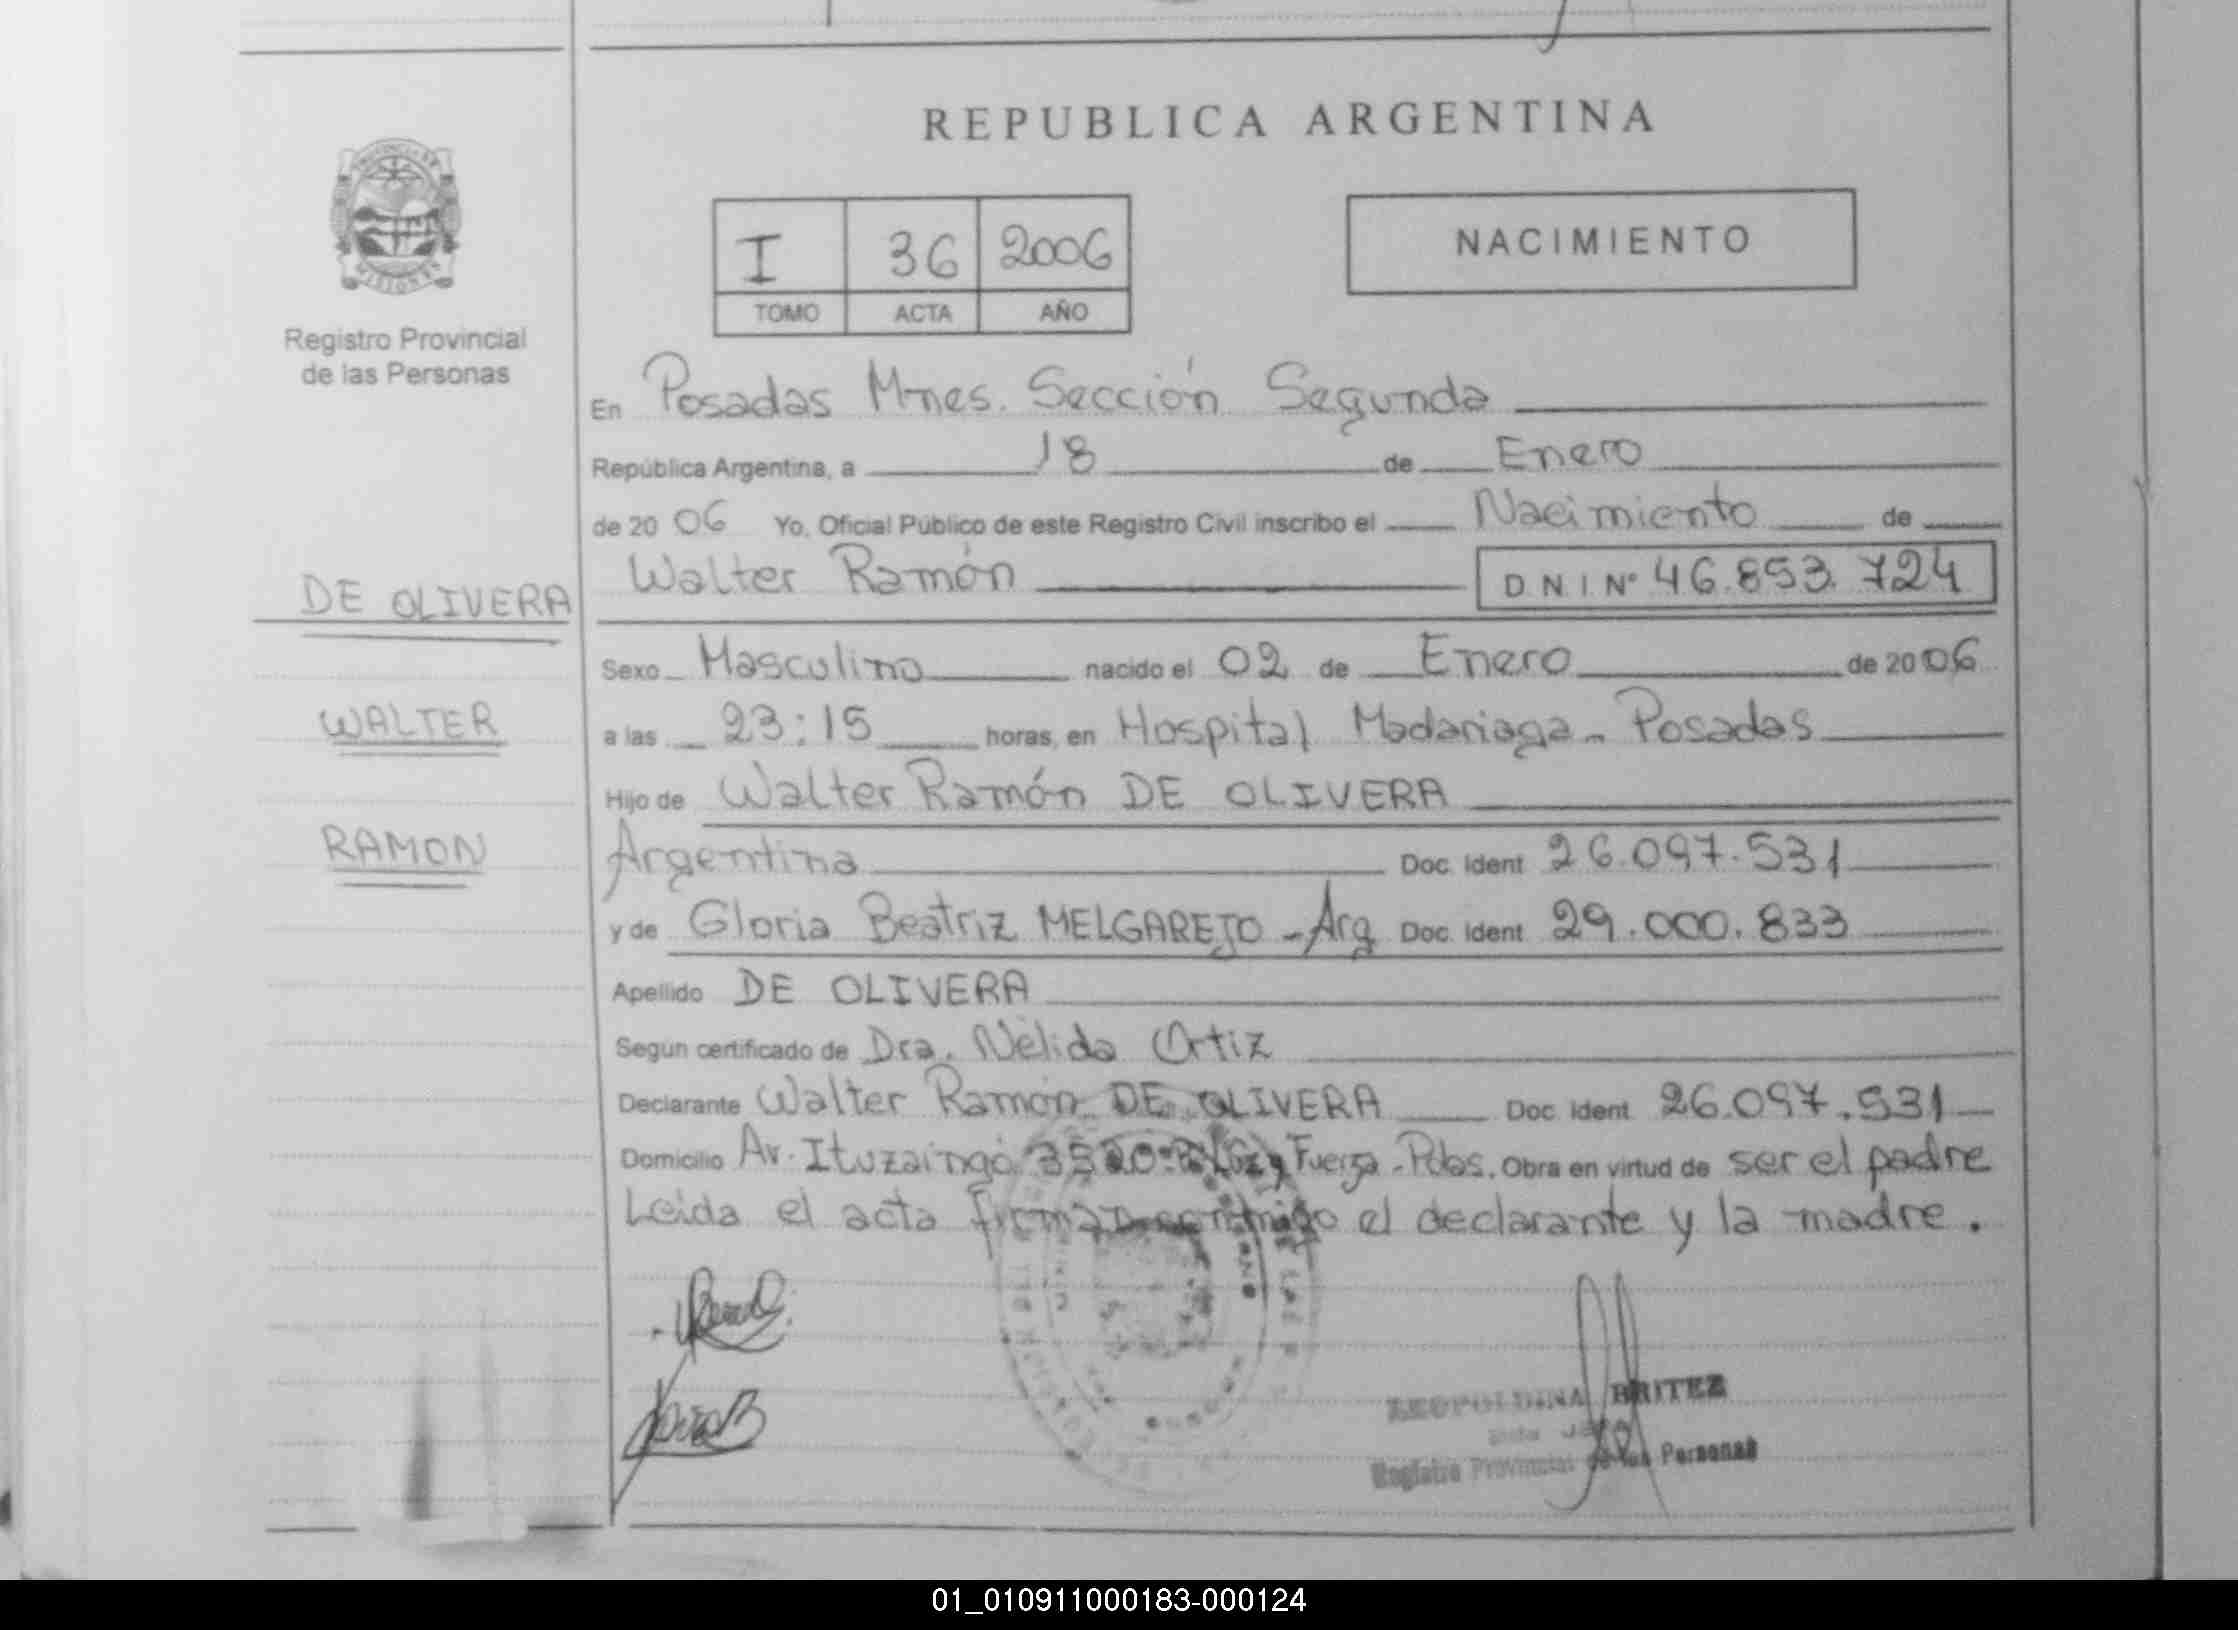 REPUBLICA ARGENTINA
PROVINCIA DE
MISIONES
Registro Provincial
de las Personas
I 36 2006
TOMO ACTA AÑO
NACIMIENTO
En Posadas Mnes. Sección Segunda
República Argentina, a 18 de Enero
de 2006 Yo, Oficial Público de este Registro Civil inscribo el Nacimiento de
Walter Ramón D.N.I. Nº 46.853.724
DE OLIVERA
WALTER
RAMON
Sexo Masculino nacido el 02 de Enero de 2006
a las 23:15 horas, en Hospital Madariaga - Posadas
Hijo de Walter Ramón DE OLIVERA
Argentina Doc. Ident 26.097.531
y de Gloria Beatriz MELGAREJO - Arg Doc. Ident 29.000.833
Apellido DE OLIVERA
Según certificado de Dra. Nélida Ortiz
Declarante Walter Ramón DE OLIVERA Doc. Ident. 26.097.531
Domicilio Av. Ituzaingó y Fuerza - Pdas. Obra en virtud de ser el padre
Leida el acta firman conmigo el declarante y la madre.
LEOPOLDINA BRITEZ
JEFA
Registro Provincial de las Personas
01_010911000183-000124